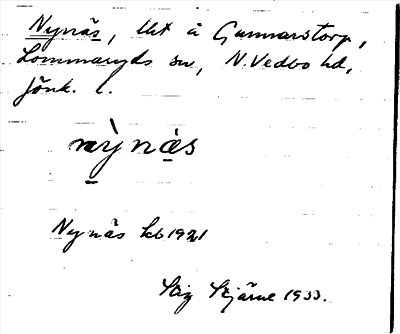 Nynäs, lht å Gunnarstorp,
Lommaryds sn, N. Vedbo hd,
Jönk. l.
nỳnä̀s
Nynäs kb 1921
Stig Stjärne 1933.